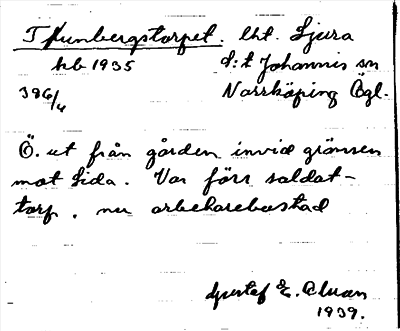 Thunbergstorpet. lht. Ljura
kb 1935 S:t Johannis sn
386/4 Norrköping Ögl.
Ö. ut från gården invid gränsen
mot Lida. Var förr soldat-
torp. nu arbetarebostad
Gustaf E.
1939.